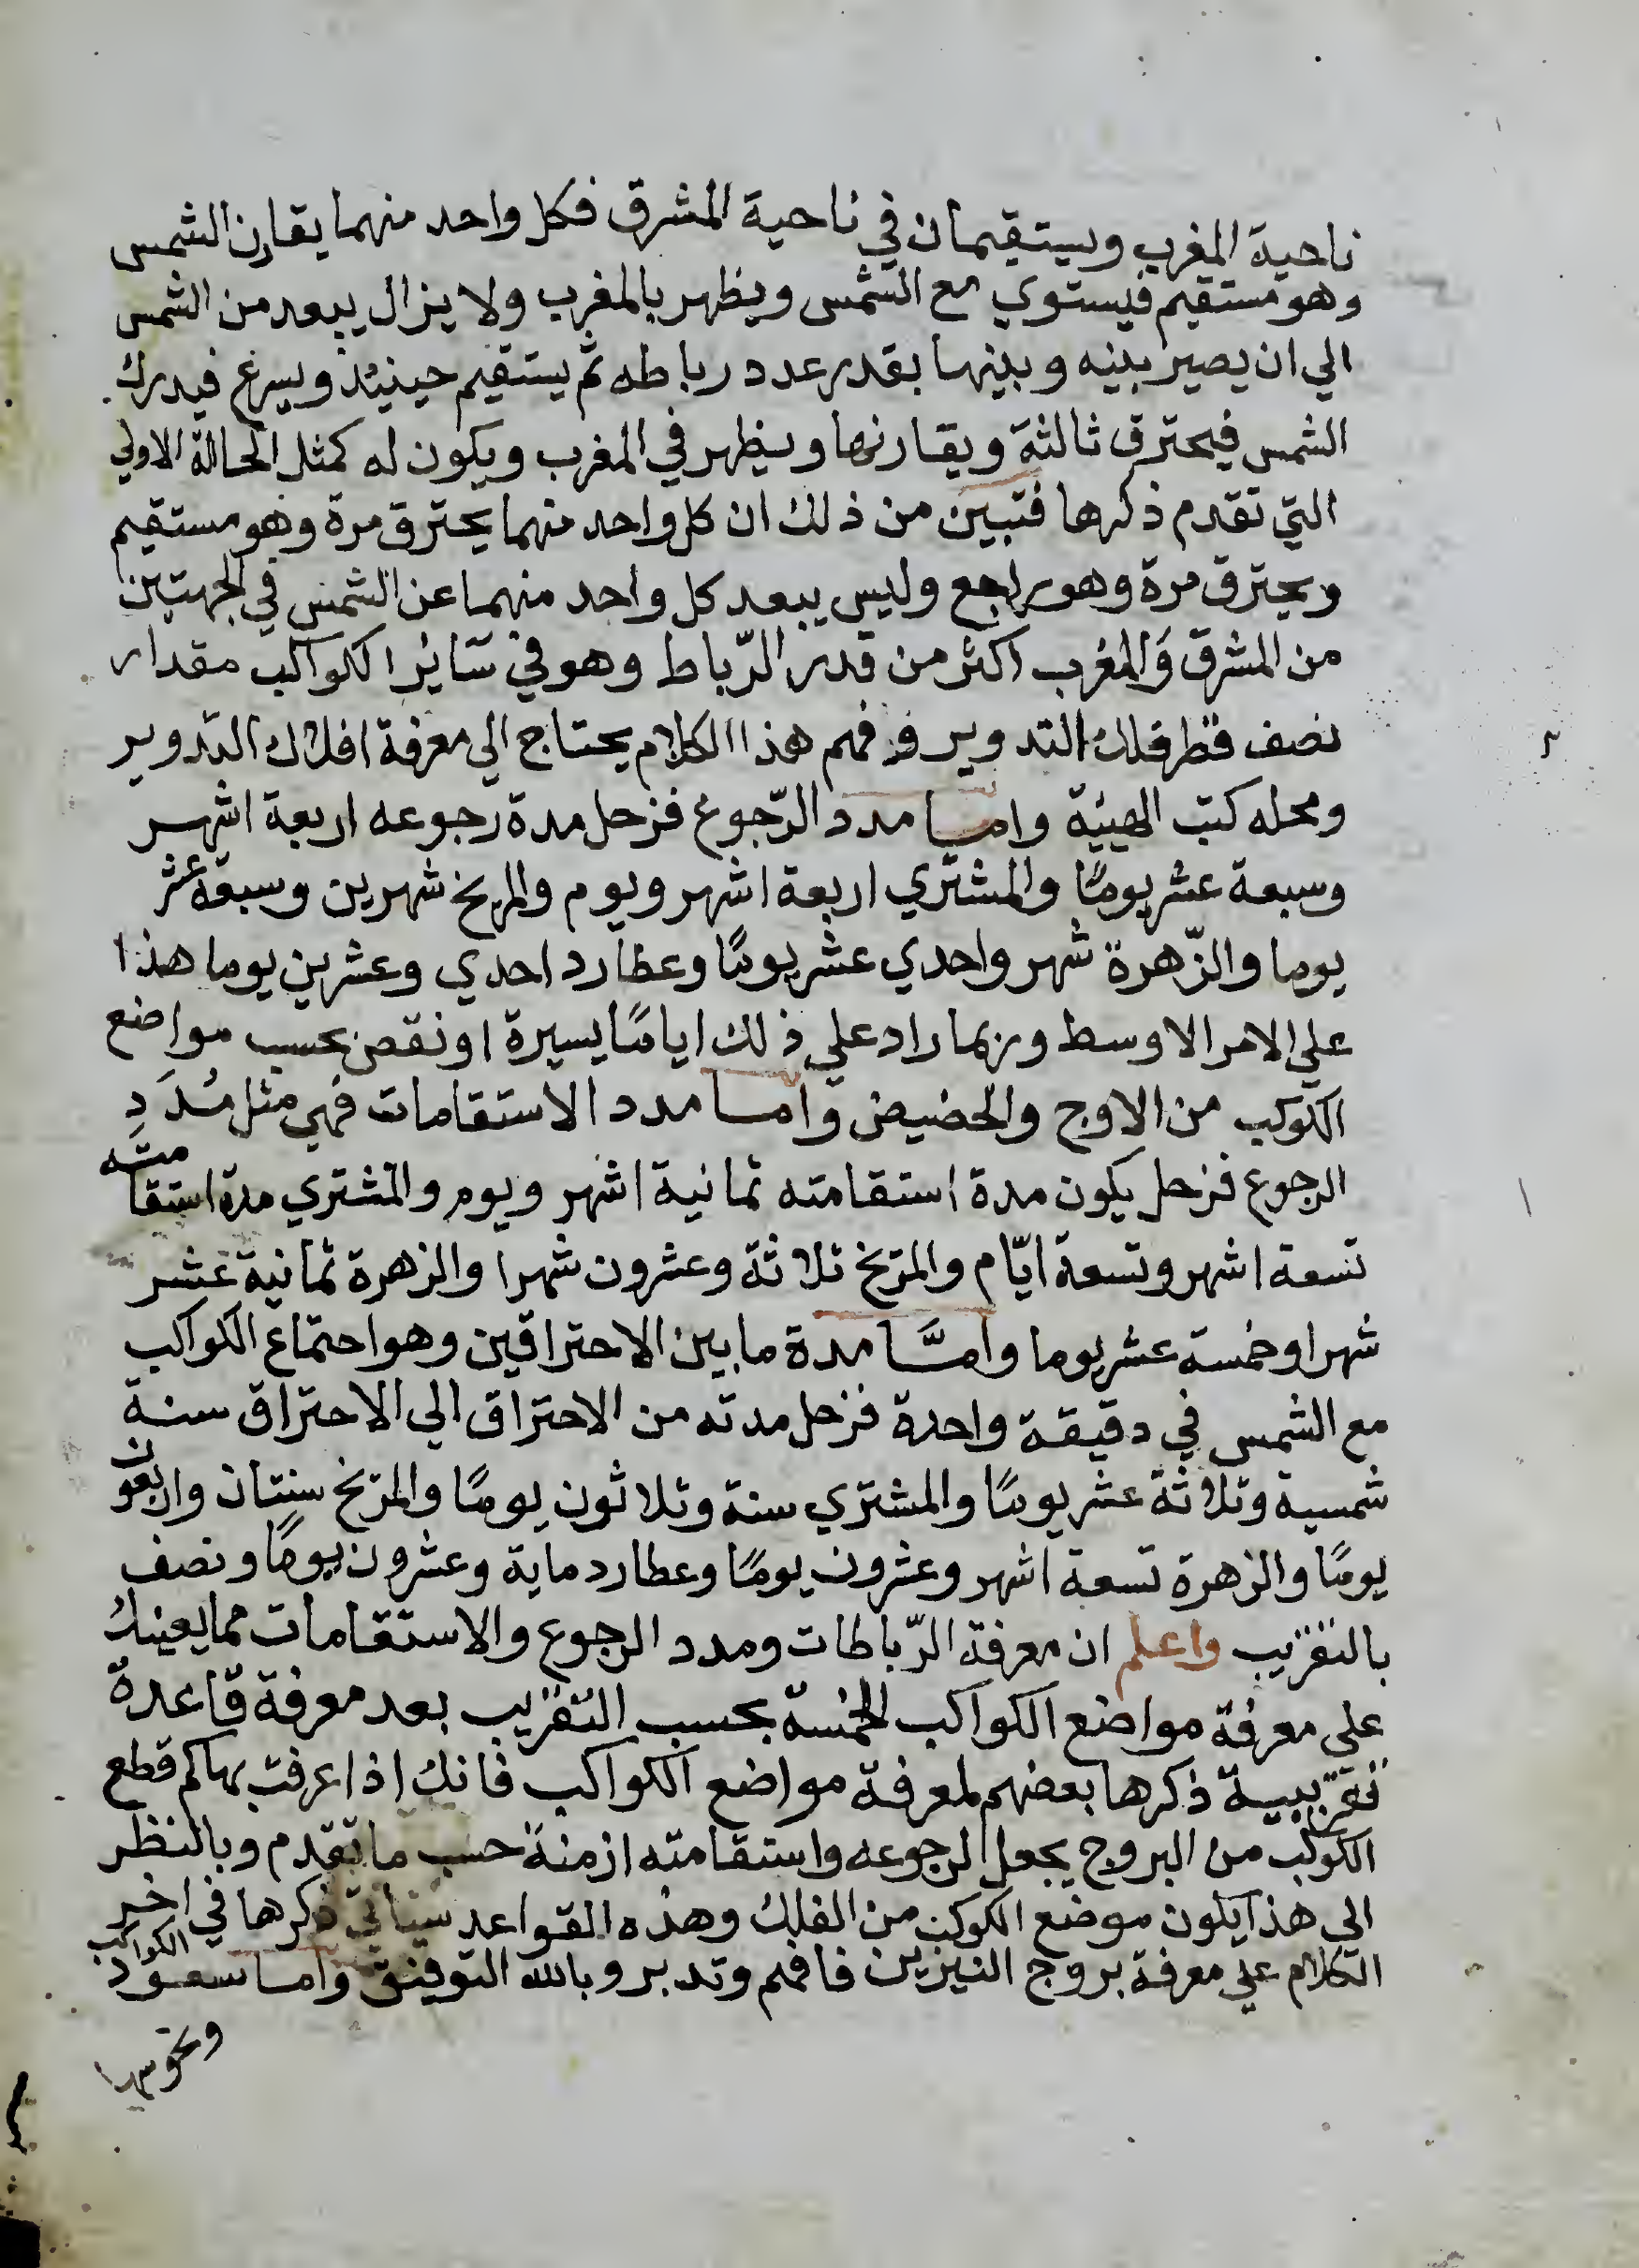 ناحية المغرب ويستقيمان في ناحية المشرق فكل واحد منهما يقارن الشمس
وهو مستقيم فيستوي مع الشمس ويظهر بالمغرب ولا يزال يبعد من الشمس
الي ان يصير بينه وبينها بقدر عدد رباطه ثم يستقيم حينيئذ ويسرع فيدرك
الشمس فيحترق ثالثة ويقارنها ويظهر في المغرب ويكون له كمثل الحالة الاولي
التي تقدم ذكرها فتبين من ذلك ان كل واحد منهما يحترق مرة وهو مستقيم
ويحترق مرة وهو راجع وليس يبعد كل واحد منهما عن الشمس في الجهتين
من المشرق وَالمغرب اكثر من قدر الرّباط وهو في سَائر الكواكب مقدار
نصف قطر فلك التدوير وفهم هذا الكلام يحتاج الي معرفة افلاك التدوير
ومحله كتب الهيئة وامـا مدد الرّجوع فزحل مدة رجوعه اربعة اشهـر
وسبعة عشر يومًا والمشتري اربعة اشهر ويوم والمريخ شهرين وسبعة عشر
يوما والزّهرة شهر واحدي عشر يومًا وعطارد احدي وعشرين يوما هذا
علي الامر الاوسط وربما زاد علي ذلك ايامًا يسيرة او نقص بحسب مواضع
الكوكب من الاوج والحضيض وامـا مدد الاستقامات فهي مثل مُدَدِ
الرجوع فزحل يكون مدة استقامته ثمانية اشهر ويوم والمشتري مدة استقامته
تسعة اشهر وتسعة ايّام والمريخ ثلاثة وعشرون شهرا والزهرة ثمانية عشر
شهرا وخمسة عشر يوما وامـَّا مدة ما بين الاحتراقين وهو اجتماع الكواكب
مع الشمس في دقيقة واحدة فزحل مدته من الاحتراق الي الاحتراق سنة
شمسية وثلاثة عشر يومًا والمشتري سنة وثلاثون يومًا والمريخ سنتان واربعون
يومًا والزهرة تسعة اشهر وعشرون يومًا وعطارد ماية وعشرون يومًا ونصف
بالتقريب واعلم ان معرفة الرّباطات ومدد الرجوع والاستقامات مما يعينك
علي معرفة مواضع الكواكب الخمسة بحسب التقريب بعد معرفة قاعدة
تقريبية ذكرها بعضهم لمعرفة مواضع الكواكب فانك اذا عرفت بها كم قطع
الكوكب من البروج يجعل لرجوعه واستقامته ازمنة حسب ما تقدم وبالنظر
الي هذا يكون موضع الكوكب من الفلك وهذه القواعد سياتي ذكرها في اخر
الكلام علي معرفة بروج النيرين فافهم وتدبر وبالله التوفيق وامـا سعود الكواكب
ونحوسها